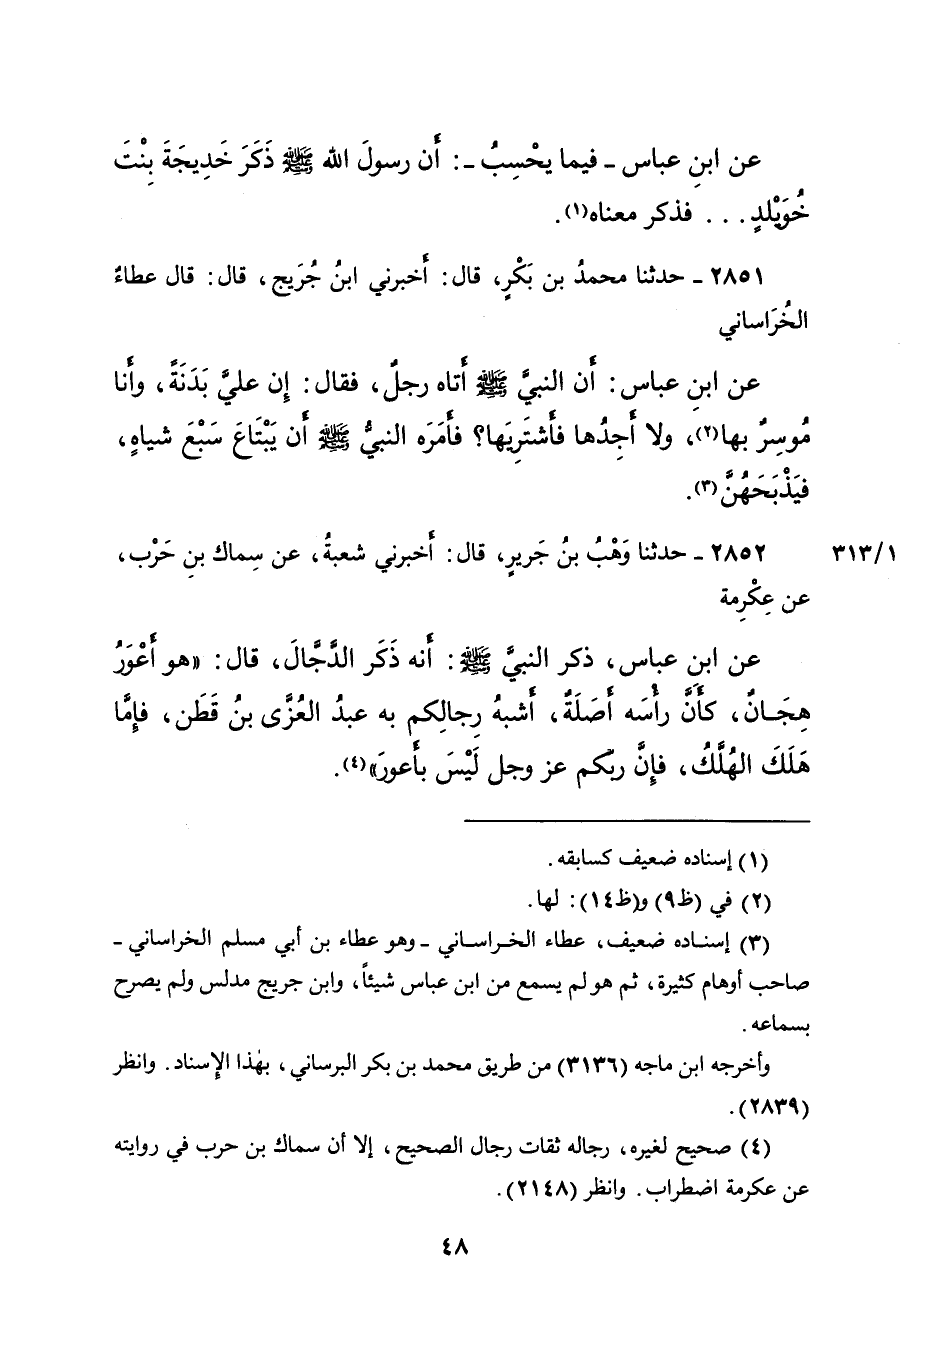 عن ابنِ عباس ـ فيما يحْسِبُ ـ: أَن رسولَ الله ﷺ ذَكَرَ خَدِيجَةَ بِنْتَ
خُوَيْلدٍ . . . فذكر معناه(١).
٢٨٥١ ـ حدثنا محمدُ بن بَكْرٍ، قال: أَخبرني ابنُ جُرَيج، قال: قال عطاءٌ
الخُرَاساني
عن ابنِ عباس: أَن النبيَّ ﷺ أَتاه رجلٌ، فقال: إِن عليَّ بَدَنَةً، وأَنا
مُوسِرٌ بها(٢)، ولا أَجِدُها فأَشتَرِيَها؟ فأَمَرَه النبيُّ ﷺ أَن يَبْتَاعَ سَبْعَ شياهٍ،
فيَذْبَحَهُنَّ(٣).
٣١٣/١ ٢٨٥٢ ـ حدثنا وَهْبُ بنُ جَريرٍ، قال: أَخبرني شعبةُ، عن سِماك بنِ حَرْب،
عن عِكْرِمة
عن ابنِ عباس، ذكر النبيَّ ﷺ: أَنه ذَكَر الدَّجَّالَ، قال: «هو أَعْوَرُ
هِجَـانٌ، كأَنَّ رأْسَه أَصَلَةٌ، أَشبهُ رِجالِكم به عبدُ العُزَّى بنُ قَطَن، فإِمَّا
هَلَكَ الهُلَّكُ، فإِنَّ ربّكم عز وجل لَيْسَ بأَعورَ»(٤).
(١) إسناده ضعيف كسابقه.
(٢) في (ظ٩) و(ظ١٤): لها.
(٣) إسنـاده ضعيف، عطاء الخـراسـاني ـ وهو عطاء بن أبي مسلم الخراساني ـ
صاحب أوهام كثيرة، ثم هو لم يسمع من ابن عباس شيئاً، وابن جريج مدلس ولم يصرح
بسماعه.
وأخرجه ابن ماجه (٣١٣٦) من طريق محمد بن بكر البرساني، بهٰذا الإسناد. وانظر
(٢٨٣٩).
(٤) صحيح لغيره، رجاله ثقات رجال الصحيح، إلا أن سماك بن حرب في روايته
عن عكرمة اضطراب. وانظر (٢١٤٨).
٤٨